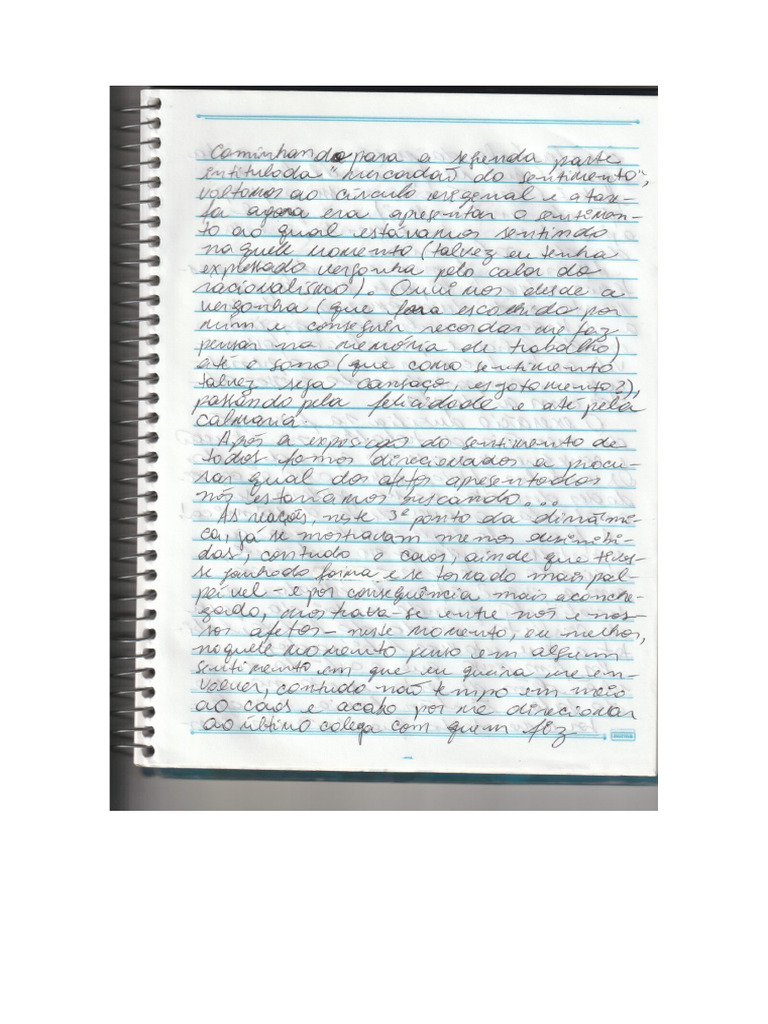 Caminhando para a segunda parte
intitulada "mercadão do sentimento",
voltamos ao círculo original e a tare-
fa agora era apresentar o sentimen-
to ao qual estávamos sentindo
naquele momento (talvez eu tenha
expressado vergonha pelo calor do
racionalismo). Ouvimos desde a
vergonha (que fora escolhida por
mim e conseguir recordar me faz
pensar na memória de trabalho)
até o sono (que como sentimento
talvez seja cansaço, esgotamento?),
passando pela felicidade e até pela
calmaria.
Após a exposição do sentimento de
todos fomos direcionados a procu-
rar qual dos afetos apresentados
nós estaríamos buscando...
As reações, neste 3º ponto da dinâmi-
ca, já se mostravam menos desinibi-
das, contudo o caos, ainda que tives-
se ganhado forma e se tornado mais pal-
pável - e por consequência mais aconche-
gado, mostrava-se entre nós e nos-
sos afetos - neste momento, ou melhor,
naquele momento penso em algum
sentimento em que eu queira me en-
volver, contudo não tempo em meio
ao caos e acabo por me direcionar
ao último colega com quem fiz